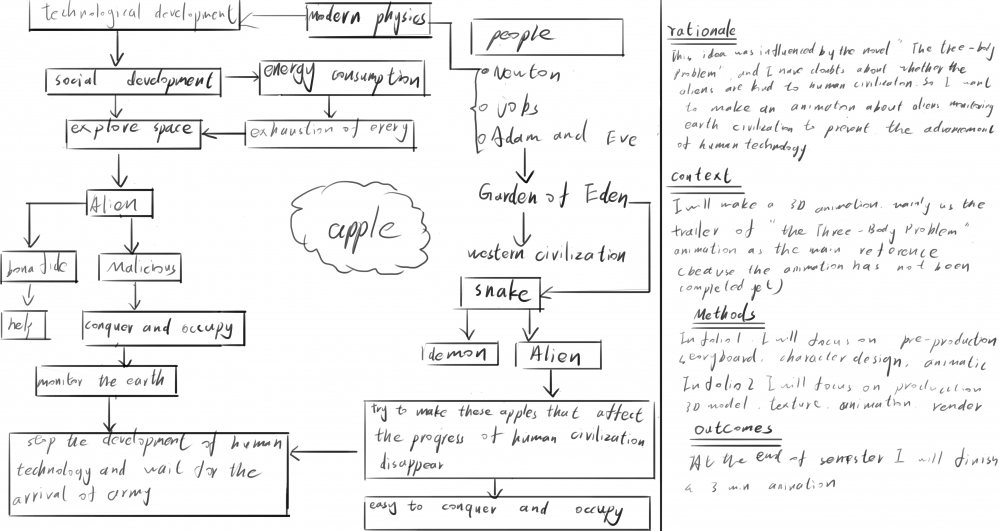 technological development
modern physics
people
social development
energy consumption
Newton
Jobs
Adam and Eve
explore space
exhaustion of every
Garden of Eden
Alien
apple
western civilization
bona fide
Malicious
snake
help
conquer and occupy
demon
Alien
monitor the earth
try to make these apples that affect
the progress of human civilization
disappear
stop the development of human
technology and wait for the
arrival of army
easy to conquer and occupy
rationale
This idea was influenced by the novel "The tree-body
Problem" and I have doubts about whether the
aliens are kind to human civilization. So I want
to make an animation about aliens monitoring
earth civilization to prevent the advancement
of human technology
context
I will make a 3D animation. mainly us the
trailer of "the Three-Body Problem"
animation as the main reference
(because the animation has not been
completed yet)
Methods
In folio 1, I will focus on pre-production
storyboard, character design, animatic
In folio 2 I will focus on production
3D model, texture, animation, render
outcomes
At the end of semester I will finish
a 3 min animation